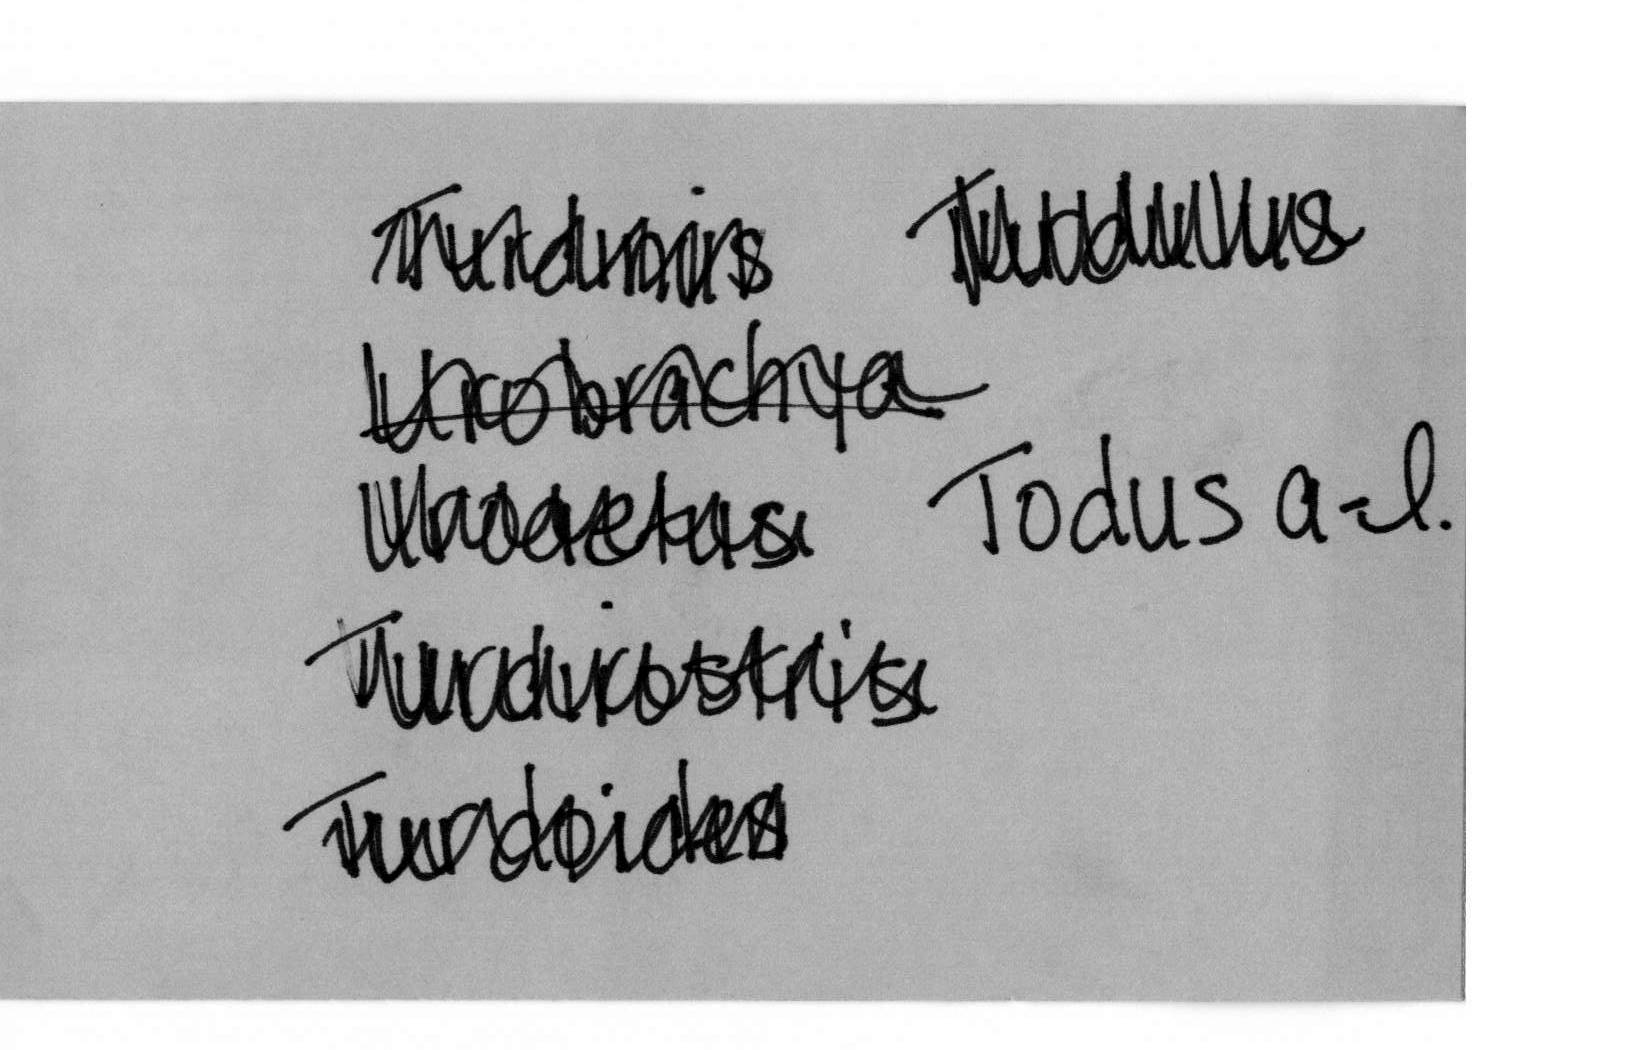 Turdinus Turdulus
Urobrachya
Uraaetus Todus a-l.
Turdirostris
Turdoides